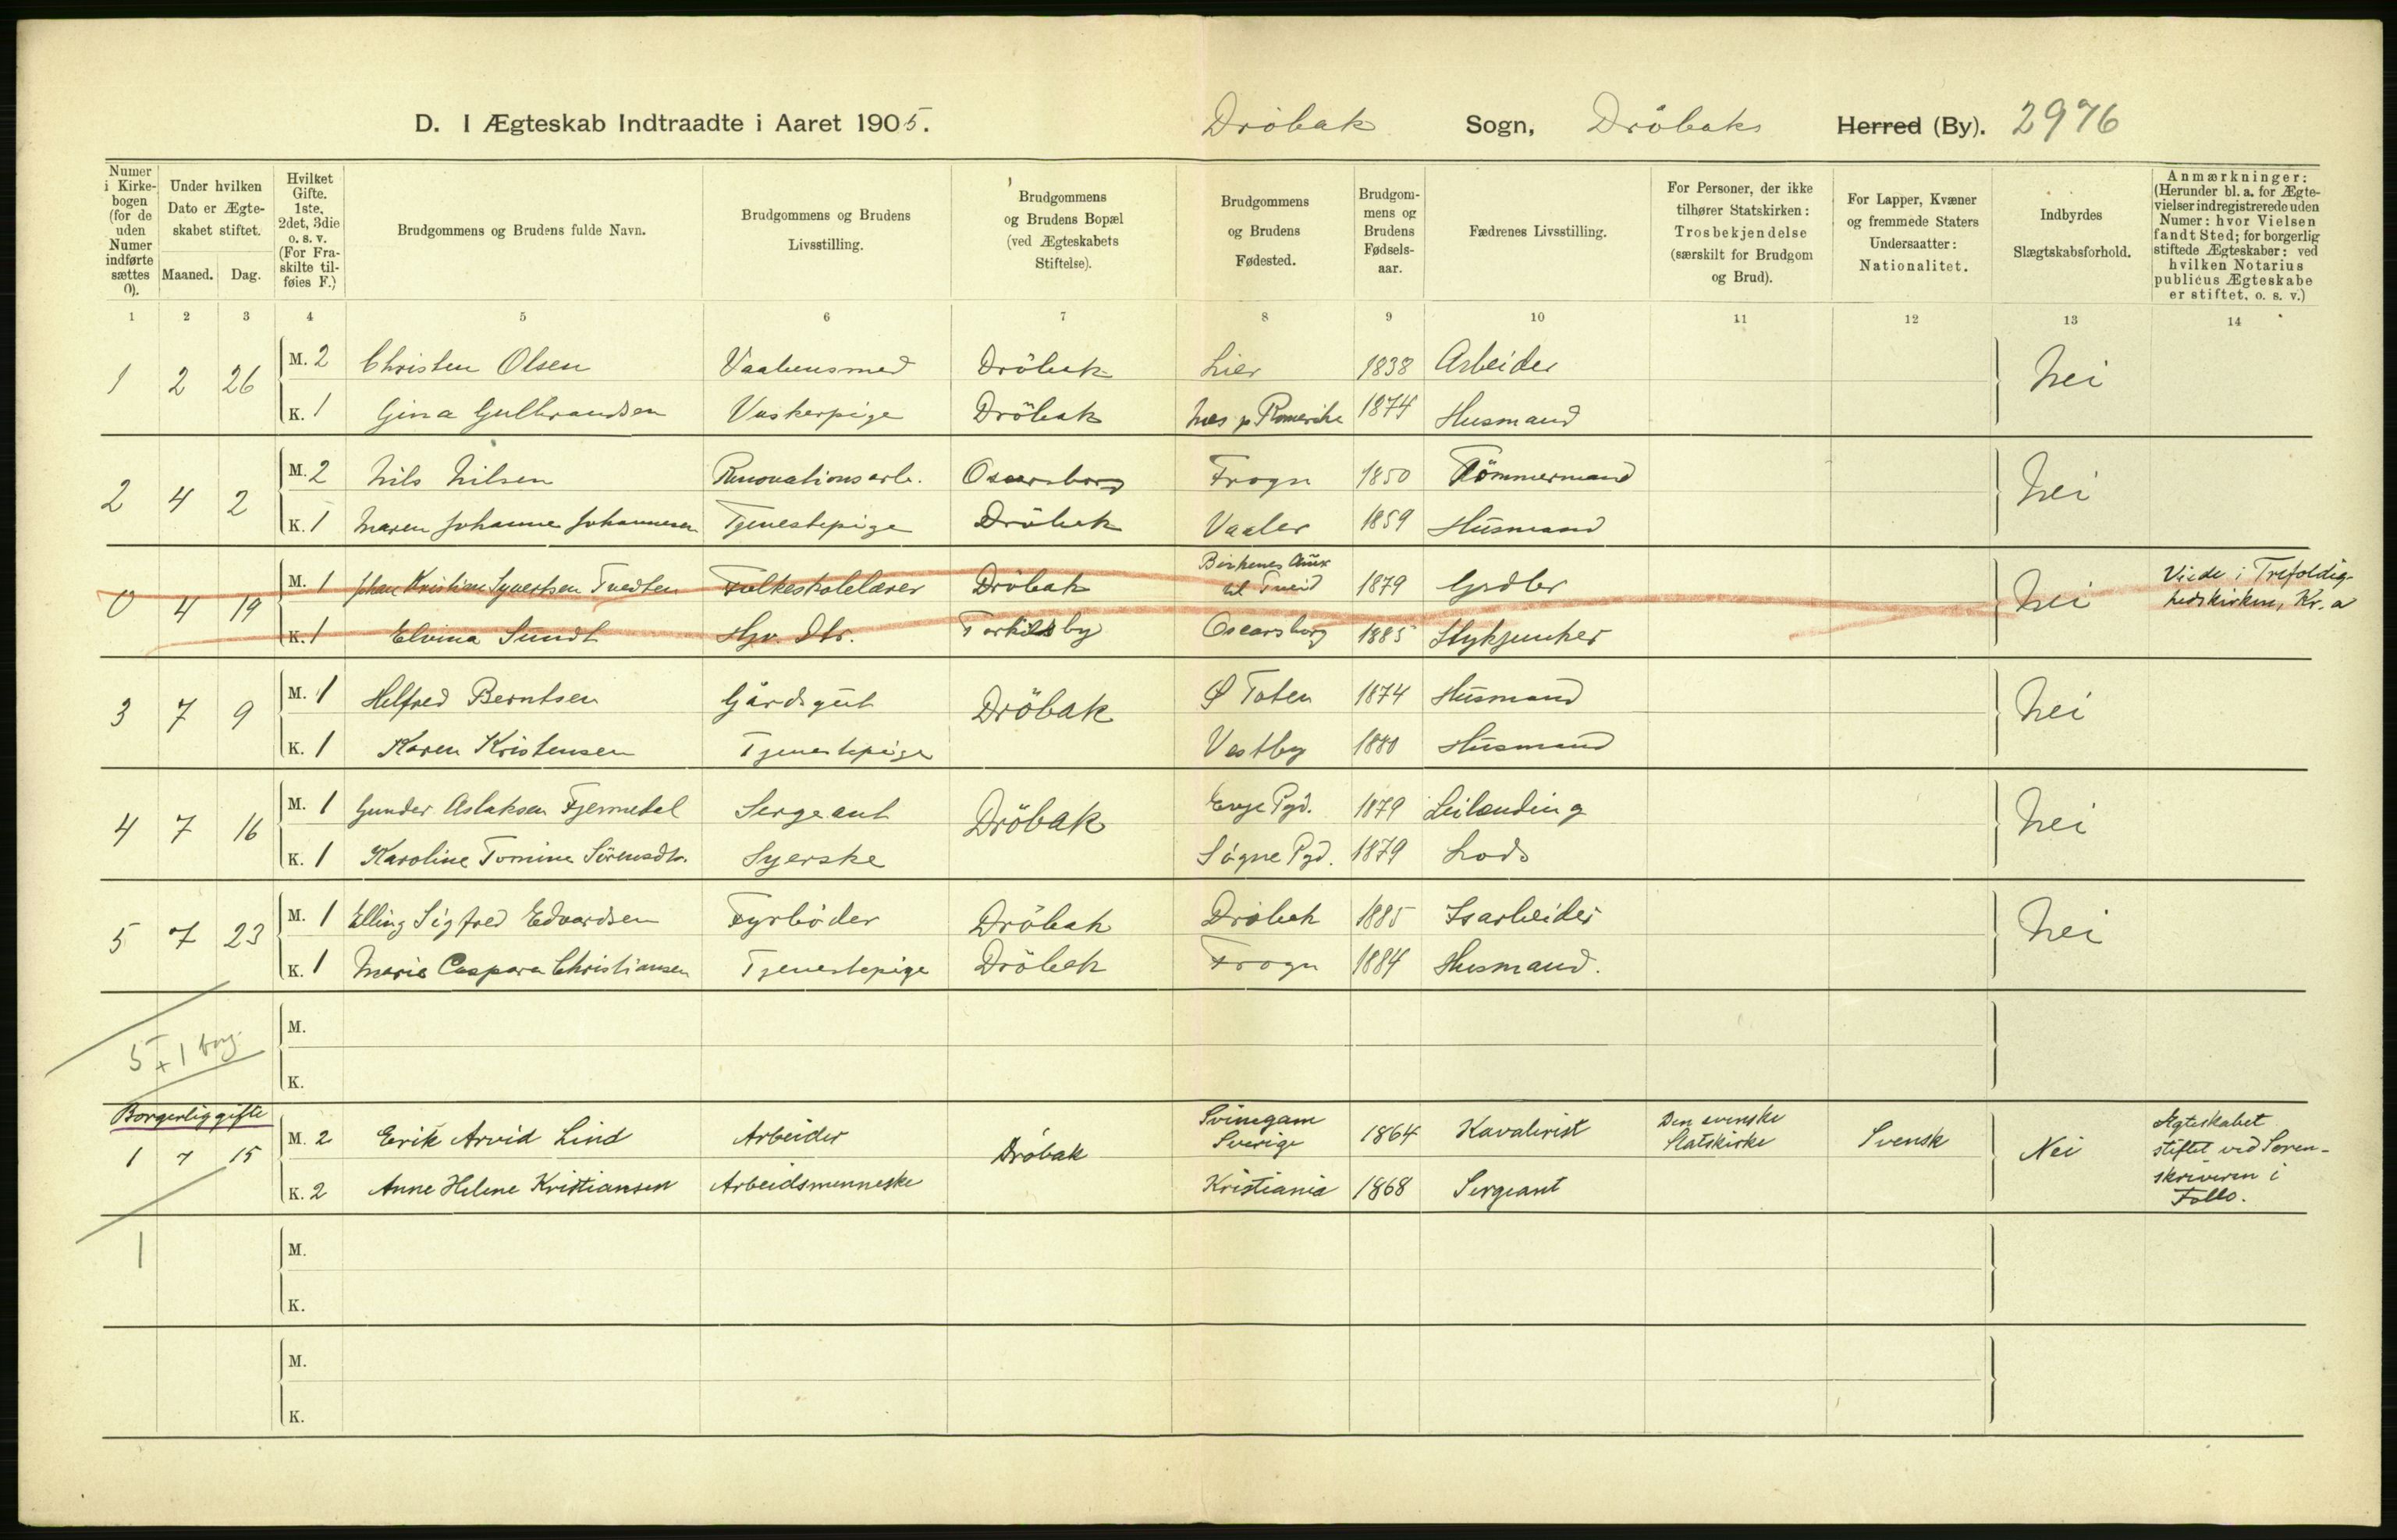 D. I Ægteskab Indtraadte i Aaret 1905. Dröbak Sogn, Dröbaks Herred (By). 2976
Numer i Kirkebogen (for de uden Numer indførte sættes 0).
Under hvilken Dato er Ægteskabet stiftet.
Maaned. Dag.
Hvilket Gifte. 1ste, 2det, 3die o. s. v. (For Fraskilte tilføies F.)
Brudgommens og Brudens fulde Navn.
Brudgommens og Brudens Livsstilling.
Brudgommens og Brudens Bopæl (ved Ægteskabets Stiftelse).
Brudgommens og Brudens Fødested.
Brudgommens og Brudens Fødselsaar.
Fædrenes Livsstilling.
For Personer, der ikke tilhører Statskirken: Trosbekjendelse (særskilt for Brudgom og Brud).
For Lapper, Kvæner og fremmede Staters Undersaatter: Nationalitet.
Indbyrdes Slægtskabsforhold.
Anmærkninger: (Herunder bl. a. for Ægtevielser indregistrerede uden Numer: hvor Vielsen fandt Sted; for borgerlig stiftede Ægteskaber: ved hvilken Notarius publicus Ægteskabet er stiftet, o. s. v.)
1 2 3 4 5 6 7 8 9 10 11 12 13 14
1 2 26 M. 2 Christen Olsen Vaabensmed Dröbak Lier 1838 Arbeider Nei
K. 1 Gina Gulbrandsen Vaskerpige Dröbak Næs p Romerike 1874 Husmand
2 4 2 M. 2 Nils Nilsen Renovationsarb. Oscarsborg Frogn 1850 Tömmermand Nei
K. 1 Maren Johanne Johannesen Tjenestepige Dröbak Vaaler 1859 Husmand
0 4 19 M. 1 Johan Kristian Syvertsen Tvedten Folkeskolelærer Dröbak Birkenes 1879 Grdbr Nei Viede i Trefoldighedskirken, Kr.a
K. 1 Elvina Sundt Hjv. Dtr. Torkildsby Oscarsborg 1885 Stykjunker
3 7 9 M. 1 Helfred Berntsen Gårdsgut Dröbak Ø Toten 1874 Husmand Nei
K. 1 Karen Kristensen Tjenestepige Vestby 1880 Husmand
4 7 16 M. 1 Gunder Aslaksen Fjermedal Sergeant Dröbak Evje Pgd. 1879 Leilænding Nei
K. 1 Karoline Tomine Sörensdtr. Syerske Sögne Pgd. 1879 Lods
5 7 23 M. 1 Elling Sigfred Edvardsen Fyrböder Dröbak Dröbak 1885 Isarbeider Nei
K. 1 Marie Caspara Christiansen Tjenestepige Dröbak Frogn 1884 Husmand.
5 + 1 borg.
M.
K.
Borgerlig gifte
1 7 15 M. 2 Erik Arvid Lind Arbeider Dröbak Svinegarn Sverige 1864 Kavalerist Den svenske Statskirke Svensk Nei Ægteskabet stiftet ved Sorenskriveren i Follo.
K. 2 Anne Helene Kristiansen Arbeidsmenneske Kristiania 1868 Sergeant
1
M.
K.
M.
K.